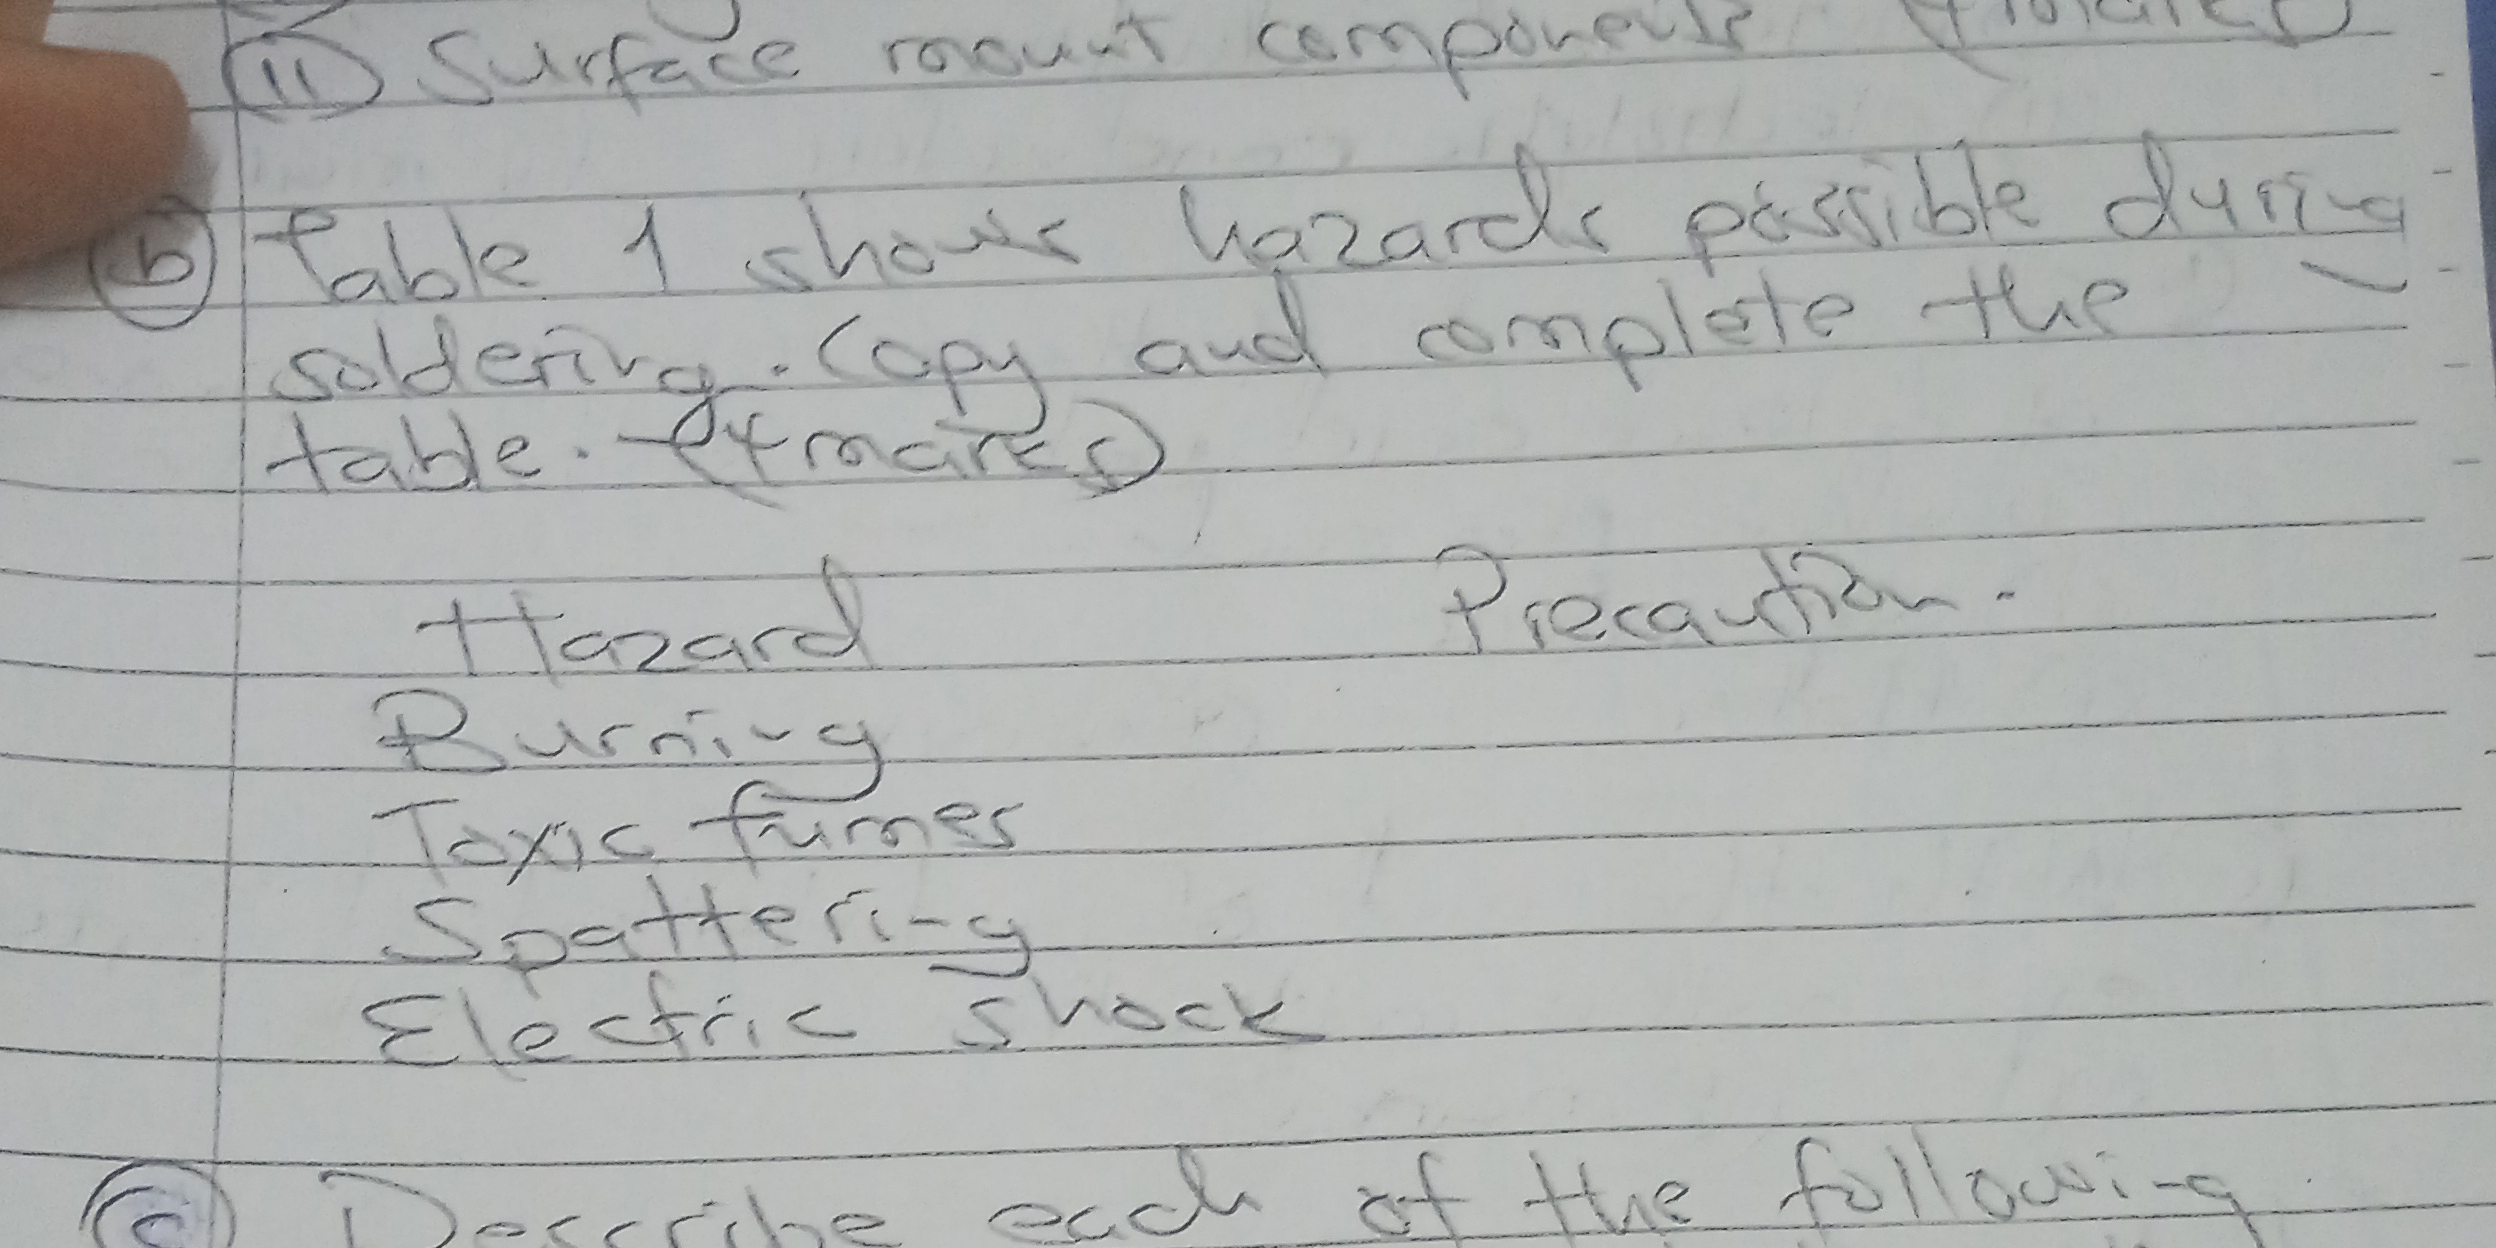 (ii) Surface mount components (4 marks)
(b) Table 1 shows hazards possible during
soldering. Copy and complete the
table. (4 marks)
Hazard Precaution.
Burning
Toxic fumes
Spattering
Electric shock
(c) Describe each of the following